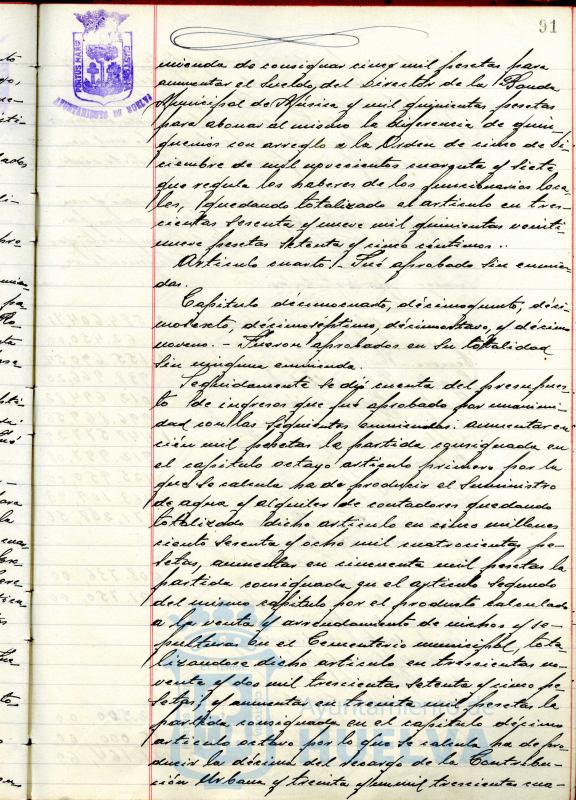 91
PORTUS MARIS CUSTODIA
AYUNTAMIENTO DE HUELVA
mienda de consignar cinco mil pesetas para
aumentar el sueldo, del Director de la Banda
Municipal de Música y mil quinientas pesetas
para abonar al mismo la diferencia de quin-
quenios con arreglo a la Orden de cinco de Di-
ciembre de mil novecientos cuarenta y siete
que regula los haberes de los funcionarios loca-
les, quedando totalizado el articulo en tres-
cientas sesenta y nueve mil quinientas veinti-
nueve pesetas setenta y cinco centimos.
Articulo cuarto.- Fué aprobado sin enmien-
das.
Capitulo décimocuarto, décimoquinto, déci-
mosexto, décimoséptimo, décimoctavo, y décimo
noveno.- Fueron aprobados en su totalidad
sin ninguna enmienda.
Seguidamente se dió cuenta del presupues-
to de ingresos que fué aprobado por unanimi-
dad con las siguientes enmiendas: aumentar en
cien mil pesetas la partida consignada en
el capitulo octavo articulo primero por lo
que se calcula ha de producir el suministro
de agua y alquiler de contadores quedando
totalizado dicho articulo en cinco millones
ciento sesenta y ocho mil cuatrocientas pe-
setas, aumentar en cincuenta mil pesetas la
partida consignada en el articulo segundo
del mismo capitulo por el producto calculado
a la venta y arrendamiento de nichos y se-
pulturas en el Cementerio municipal, tota-
lizandose dicho articulo en trescientas no-
venta y dos mil trescientas setenta y cinco pe-
setas; y aumentar en treinta mil pesetas la
partida consignada en el capitulo décimo
articulo octavo por lo que se calcula ha de pro-
ducir la décima del recargo de la Contribu-
ción Urbana y treinta y un mil trescientas cua-
Ayuntamiento de
HUELVA